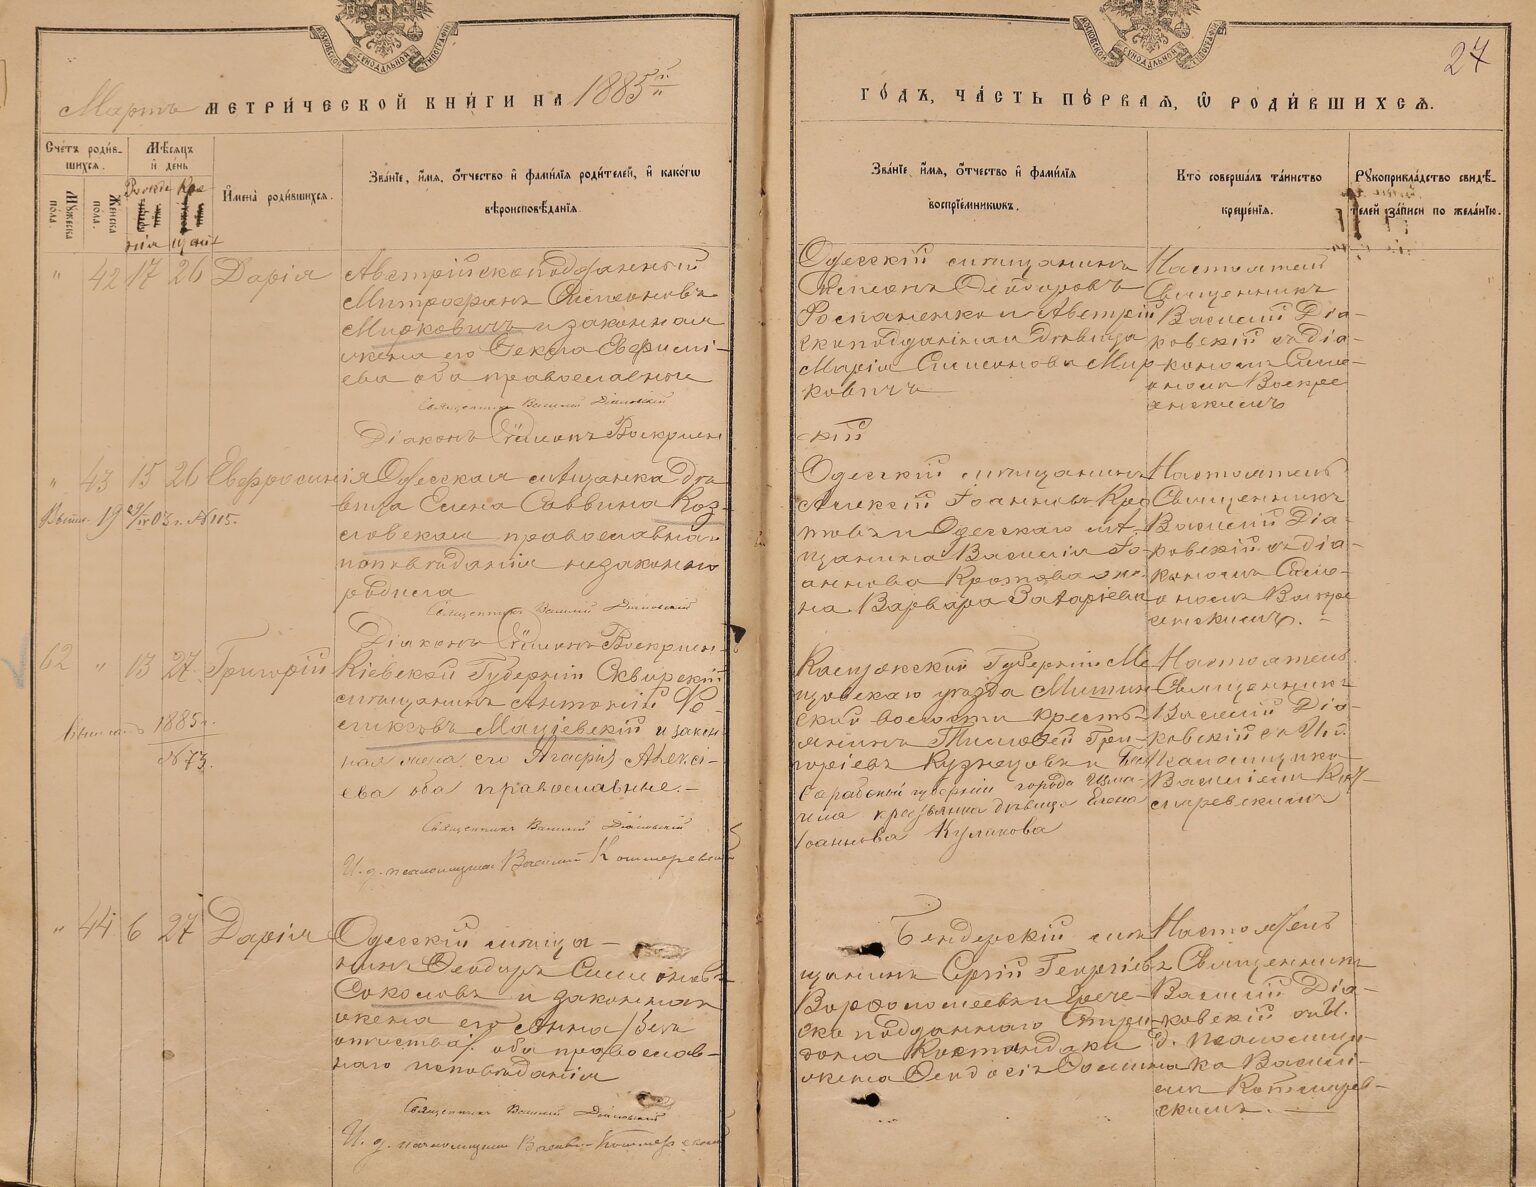 МОСКОВСКОЙ СѴНОДАЛЬНОЙ ТИПОГРАФІИ
МОСКОВСКОЙ СѴНОДАЛЬНОЙ ТИПОГРАФІИ
27
Мартъ МЕТРИ́ЧЕСКОЙ КНИ́ГИ НА 1885 г.
ГО́ДЪ, ЧА́СТЬ ПЕ́РВАЯ, Ѡ РОДИ́ВШИХСЯ.
Сче́тъ роди́вшихся.
Мꙋ́жеска пола.
Же́нска пола.
Мѣ́сяцъ и́ де́нь
Рожде
нія
Кре
щенія
И҆мена̀ роди́вшихся.
Зва́нїе, и҆́мя, ѻ҆́тчество и҆ фами́лїя роди́телей, и҆ како́гѡ
вѣроисповѣ́данїя.
Зва́нїе, и҆́мя, ѻ҆́тчество и҆ фами́лїя
воспрїе́мникѡвъ.
Кто̀ соверша́лъ та́инство
креще́нїя.
Рꙋкоприкла́дство свидѣ́-
телей за́писи по жела́нїю.
" 42 17 26 Дарія
Австрійскоподданный
Митрофанъ Симеоновъ
Мирковичъ и законная
жена его Текла Евфимі-
ева оба православные
Священникъ Василій Діаковскій
Діаконъ Симеонъ Воскресен
скій
Одесскій мѣщанинъ
Симеонъ Ѳеодоровъ
и Австрій
скоподданная дѣвица
Марія Симеонова Мир
ковичъ
Настоятель
Священникъ
Василій Діа-
ковскій съ діа-
кономъ Симе-
ономъ Воскре
сенскимъ
" 43 15 26 Евфросинія
Одесская мѣщанка дѣ
вица Елена Саввина Коз-
ловская православнаго
исповѣданія незаконно
родила
Священникъ Василій Діаковскій
Діаконъ Симеонъ Воскресен
Одесскій мѣщанинъ
Алексій Іоанновъ Кро
товъ и Одесскаго мѣ-
щанина Василія Іо-
аннова Кротова же-
на Варвара Захаріева
Настоятель
Священникъ
Василій Діа-
ковскій съ діа-
кономъ Симе-
ономъ Воскре
сенскимъ.
62 " 13 27 Григорій
1885 г.
№ 73.
Кіевской Губерніи Сквирскій
мѣщанинъ Антоній Фе-
ликсовъ Маціевскій и закон
ная жена его Агафія Алексі-
ева оба православные.-
Священникъ Василій Діаковскій
И. д. псаломщика Василій Котляревскій
Калужской Губерніи Ме
щовскаго уѣзда
ской волости кресть-
янинъ Тимоѳей Гри-
горіевъ Кузнецовъ и Бес
сарабской губерніи города Изма-
ила дѣвица Елена
Іоаннова Куликова
Настоятель
Священникъ
Василій Діа-
ковскій съ И. д.
псаломщика
Василіемъ Кот
ляревскимъ
" 44 6 27 Дарія
Одесскій мѣща-
нинъ Ѳеодоръ Симеоновъ
Соколовъ и законная
жена его Анна /безъ
отчества/ оба православ-
наго исповѣданія
Священникъ Василій Діаковскій
И. д. псаломщика Василій Котляревскій
Бендерскій мѣ
щанинъ Сергій Георгіевъ
Ворѳоломеевъ и Грече-
ско подданнаго Спири-
дона Костандаки
жена Ѳеодосія
Настоятель
Священникъ
Василій Діа-
ковскій съ И.
д. псаломщи-
ка Василі-
емъ Котлярев-
скимъ.